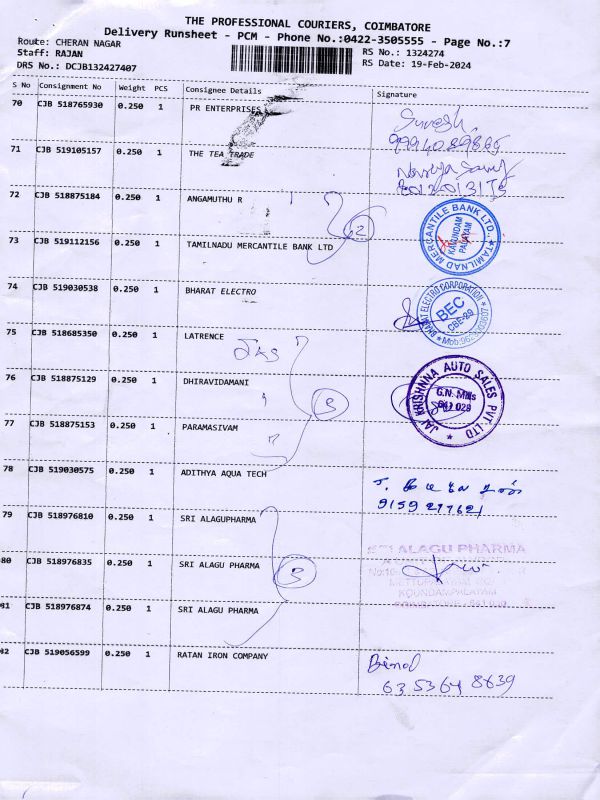 THE PROFESSIONAL COURIERS, COIMBATORE
Delivery Runsheet - PCM - Phone No.:0422-3505555 - Page No.:7
Route: CHERAN NAGAR
Staff: RAJAN
DRS No.: DCJB132427407
RS No.: 1324274
RS Date: 19-Feb-2024
S No Consignment No Weight PCS Consignee Details Signature
70 CJB 518765930 0.250 1 PR ENTERPRISES Suresh
71 CJB 519105157 0.250 1 THE TEA TRADE
72 CJB 518875184 0.250 1 ANGAMUTHU R
73 CJB 519112156 0.250 1 TAMILNADU MERCANTILE BANK LTD 2
TAMILNAD MERCANTILE BANK LTD.
KAUNDAM
PALAYAM
74 CJB 519030538 0.250 1 BHARAT ELECTRO
BHARAT ELECTRO CORPORATION
BEC
CBE-29
75 CJB 518685350 0.250 1 LATRENCE
76 CJB 518875129 0.250 1 DHIRAVIDAMANI 3
JAI KRISHNNA AUTO SALES PVT. LTD
G.N. Mills
641 029
77 CJB 518875153 0.250 1 PARAMASIVAM
78 CJB 519030575 0.250 1 ADITHYA AQUA TECH
9159277621
79 CJB 518976810 0.250 1 SRI ALAGUPHARMA
80 CJB 518976835 0.250 1 SRI ALAGU PHARMA 3
SRI ALAGU PHARMA
KOUNDAMPALAYAM
81 CJB 518976874 0.250 1 SRI ALAGU PHARMA
82 CJB 519056599 0.250 1 RATAN IRON COMPANY Binod
63 5364 8639